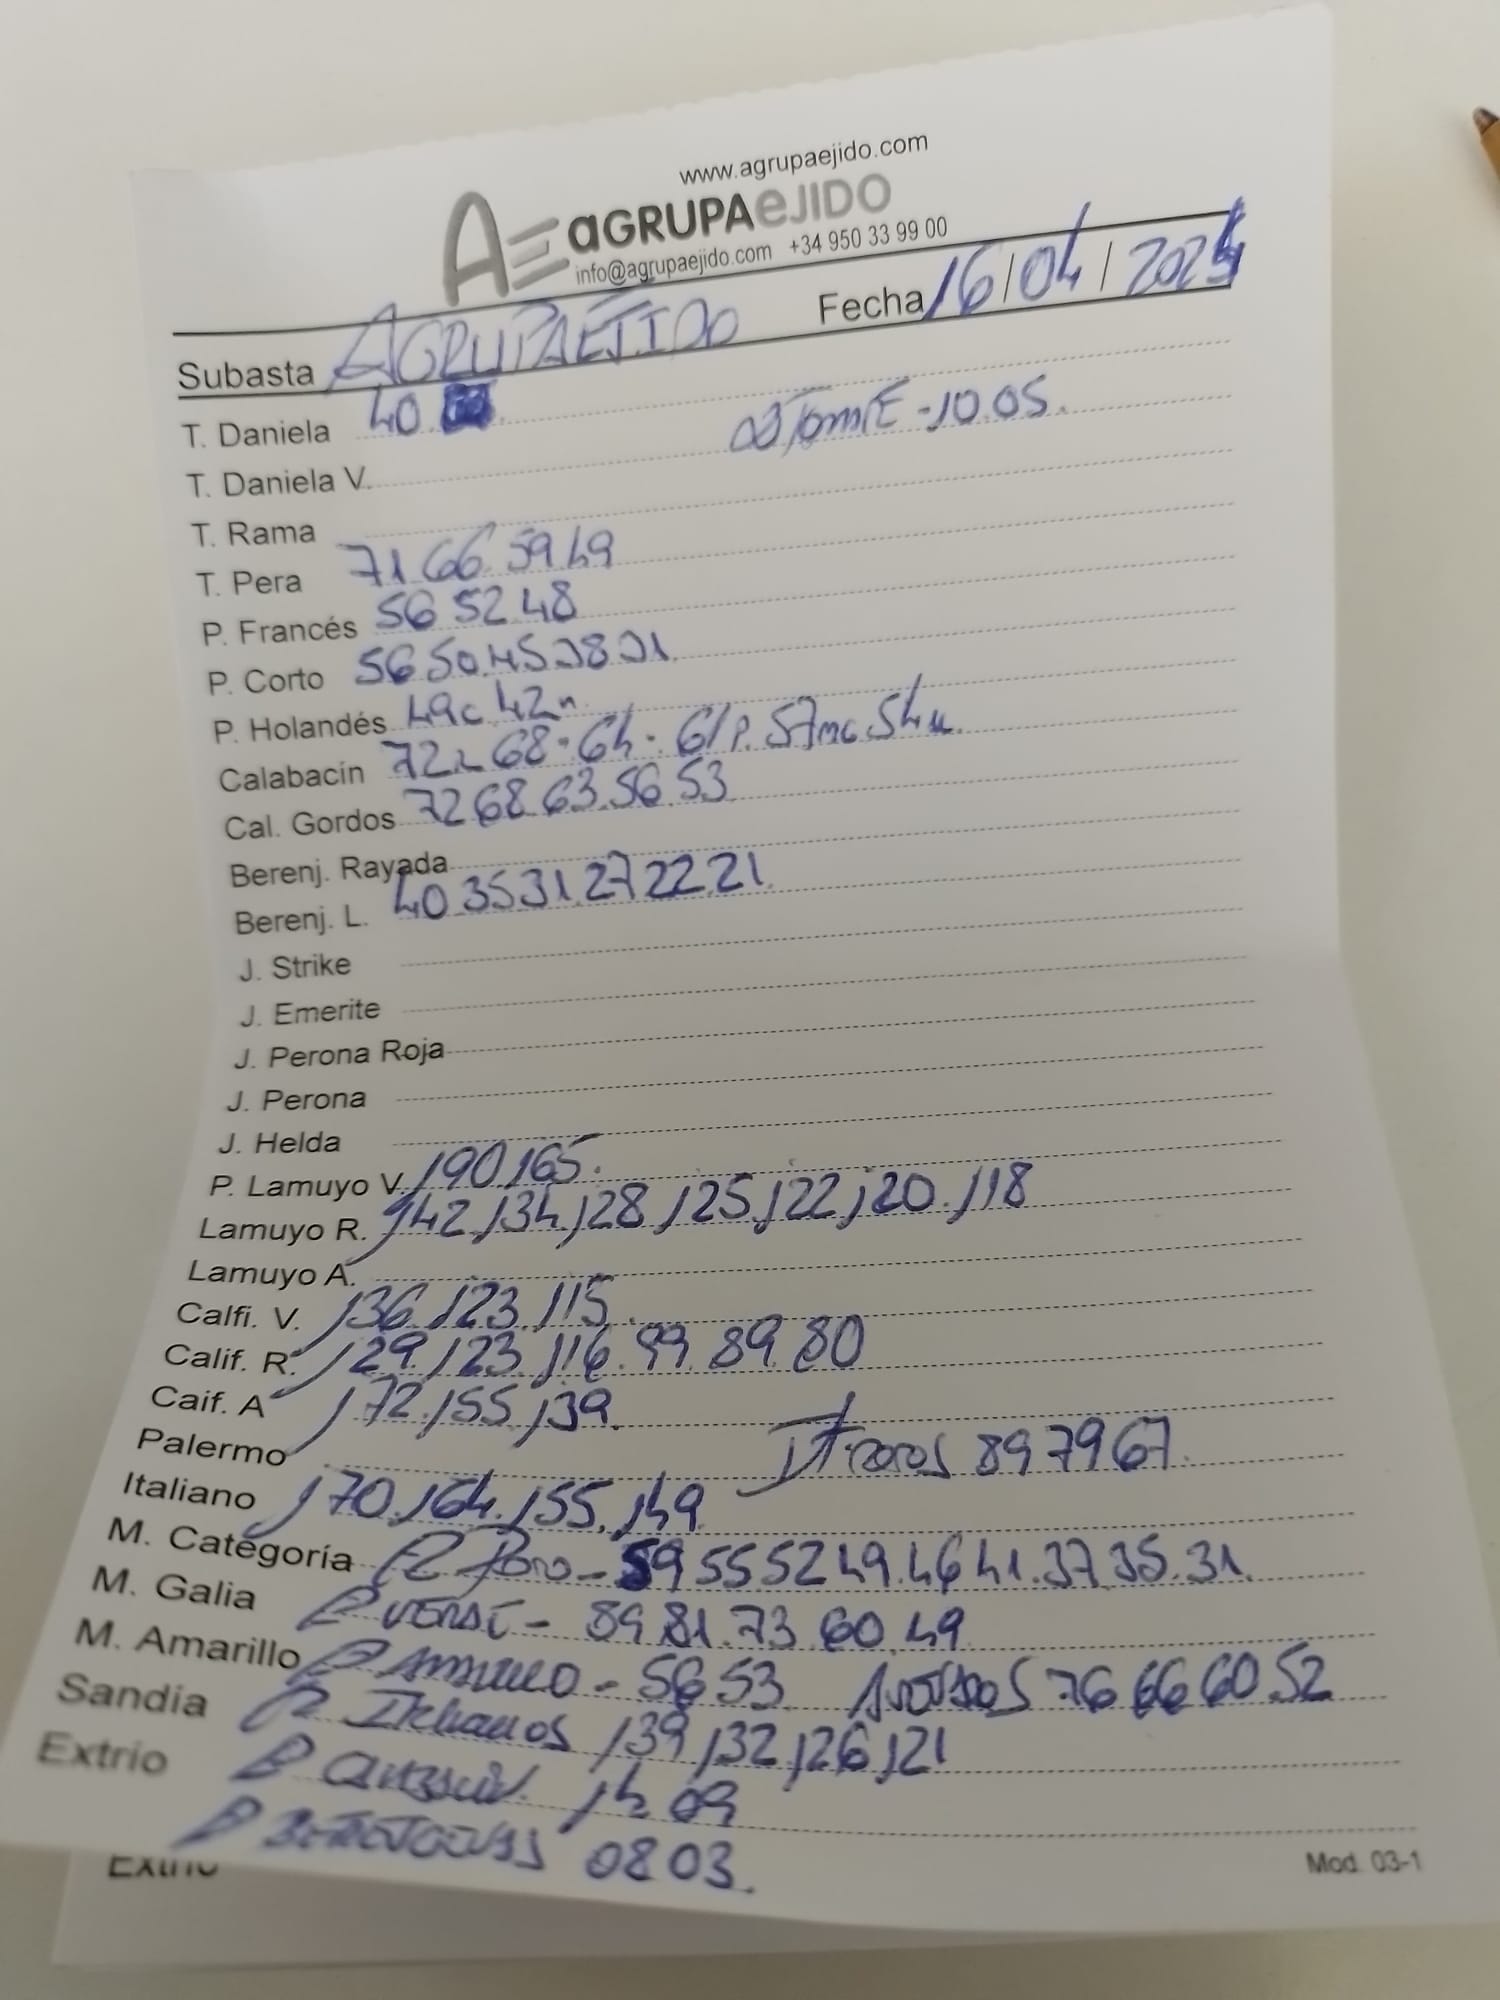 www.agrupaejido.com
AE aGRUPAeJIDO
info@agrupaejido.com +34 950 33 99 00
Subasta AGRUPAEJIDO Fecha 16/04/2025
T. Daniela 40
-10.05.
T. Daniela V.
T. Rama
T. Pera 71 66 59 49
P. Francés 56 52 48
P. Corto 56 50.45 38 31.
P. Holandés 49c 42n
Calabacín 72L 68.64. 61P. 57mc 54u
Cal. Gordos 72 68 63.56.53
Berenj. Rayada
Berenj. L. 40 35 31.27 22.21.
J. Strike
J. Emerite
J. Perona Roja
J. Perona
J. Helda
P. Lamuyo V. 190 165.
Lamuyo R. 142,134,128,125,122,120.118
Lamuyo A.
Calfi. V. 136.123.115.
Calif. R. 129.123.116.99.89.80
Caif. A 172.155,139.
Palermo 89 79 67.
Italiano 170.164.155.149.
M. Categoría - 59 55 52 49.46 41.37 35.31.
M. Galia P VERDE - 89 81.73 60.49
M. Amarillo P AMARILLO - 56 53 76 66 60.52
Sandía P Italianos 139,132,126,121
Extrio P 14 09
P 08 03.
Extrio
Mod. 03-1